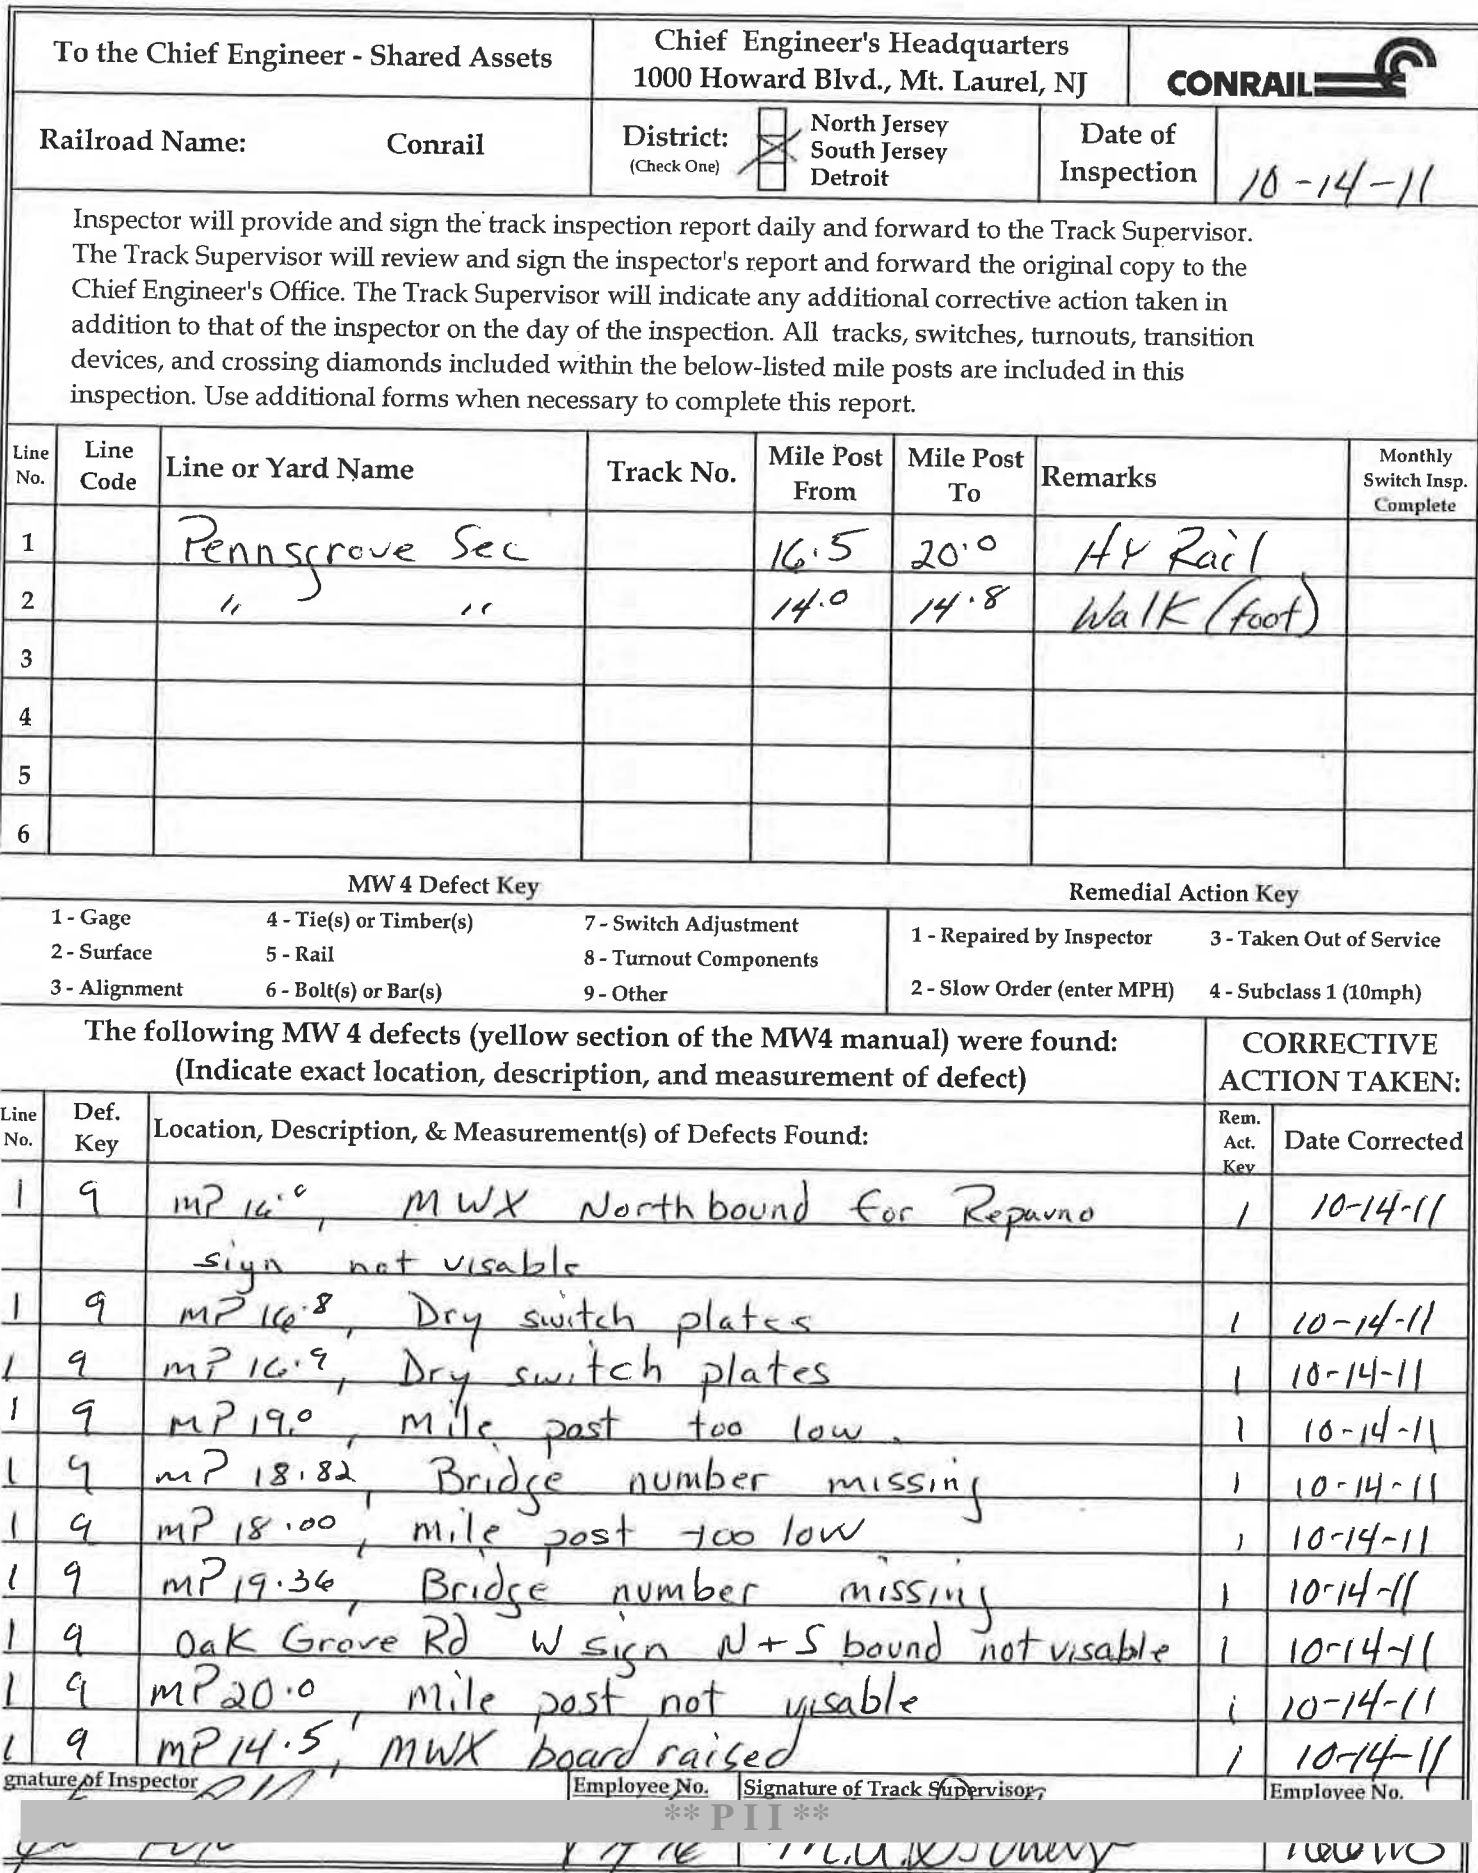 To the Chief Engineer - Shared Assets
Chief Engineer's Headquarters
1000 Howard Blvd., Mt. Laurel, NJ
CONRAIL
Railroad Name: Conrail
District:
(Check One)
North Jersey
South Jersey
Detroit
Date of
Inspection
10-14-11
Inspector will provide and sign the track inspection report daily and forward to the Track Supervisor.
The Track Supervisor will review and sign the inspector's report and forward the original copy to the
Chief Engineer's Office. The Track Supervisor will indicate any additional corrective action taken in
addition to that of the inspector on the day of the inspection. All tracks, switches, turnouts, transition
devices, and crossing diamonds included within the below-listed mile posts are included in this
inspection. Use additional forms when necessary to complete this report.
Line No. Line Code Line or Yard Name Track No. Mile Post From Mile Post To Remarks Monthly Switch Insp. Complete
1 Pennsgrove Sec 16.5 20.0 HY Rail
2 " " 14.0 14.8 Walk (foot)
3
4
5
6
MW 4 Defect Key Remedial Action Key
1 - Gage 4 - Tie(s) or Timber(s) 7 - Switch Adjustment 1 - Repaired by Inspector 3 - Taken Out of Service
2 - Surface 5 - Rail 8 - Turnout Components
3 - Alignment 6 - Bolt(s) or Bar(s) 9 - Other 2 - Slow Order (enter MPH) 4 - Subclass 1 (10mph)
The following MW 4 defects (yellow section of the MW4 manual) were found:
(Indicate exact location, description, and measurement of defect)
CORRECTIVE
ACTION TAKEN:
Line No. Def. Key Location, Description, & Measurement(s) of Defects Found: Rem. Act. Key Date Corrected
1 9 MP MWX Northbound for Repauno 1 10-14-11
sign not visable
1 9 MP 16.8, Dry switch plates 1 10-14-11
1 9 MP 16.9, Dry switch plates 1 10-14-11
1 9 MP 19.0, Mile post too low. 1 10-14-11
1 9 MP 18.82, Bridge number missing 1 10-14-11
1 9 MP 18.00, mile post too low 1 10-14-11
1 9 MP 19.36, Bridge number missing 1 10-14-11
1 9 Oak Grove Rd W sign N+S bound not visable 1 10-14-11
1 9 MP 20.0, Mile post not visable 1 10-14-11
1 9 MP 14.5, MWX board raised 1 10-14-11
gnature of Inspector Employee No. Signature of Track Supervisor Employee No.
** P I I **